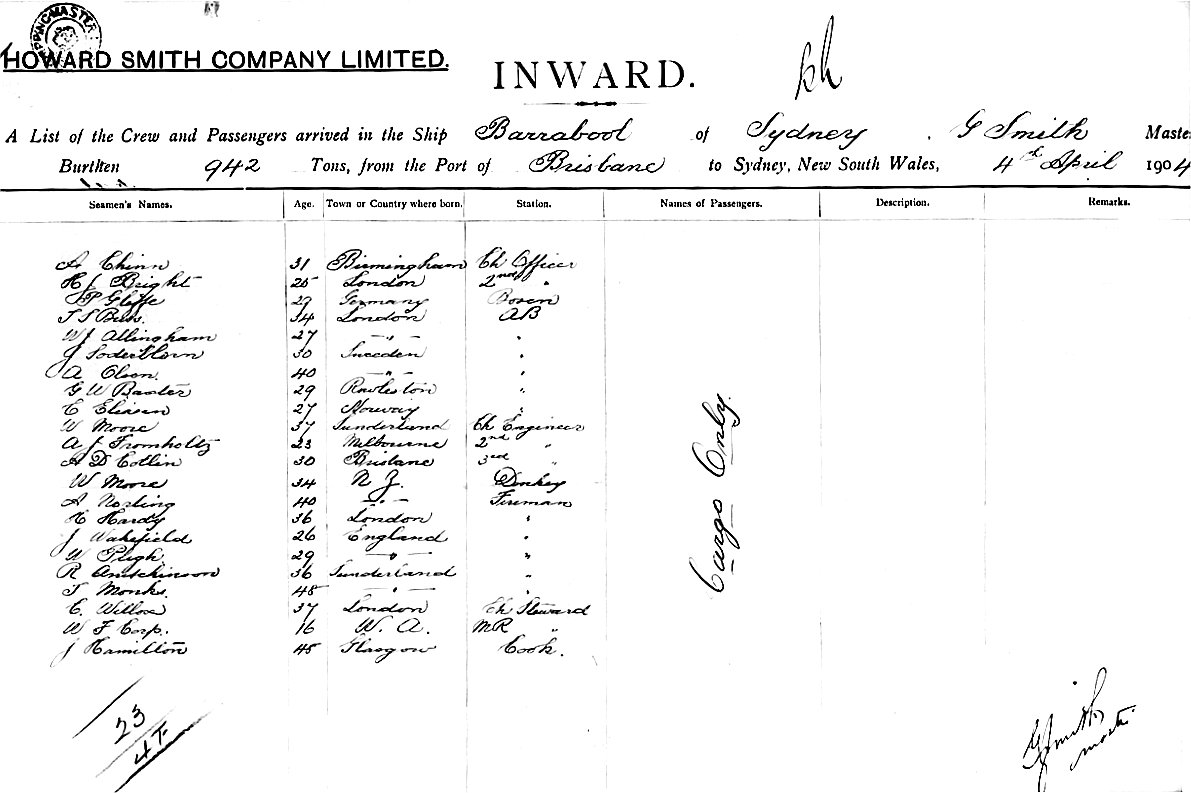 SHIPPING MASTER
HOWARD SMITH COMPANY LIMITED.
INWARD.
A List of the Crew and Passengers arrived in the Ship Barrabool of Sydney . G Smith Master
Burthen 942 Tons, from the Port of Brisbane to Sydney, New South Wales, 4th April 1904
Seamen's Names. Age. Town or Country where born. Station. Names of Passengers. Description. Remarks.
A Chinn 31 Birmingham Ch Officer
H J Bright 25 London 2nd "
29 Germany Bosen
34 London AB
W J Allingham 27 — " — "
J 30 Sweeden "
A Olsen. 40 — " — "
G W Baxter 29 Rawleston "
C Eliasen 27 Norway "
W Moore 37 Sunderland Ch Engineer
A J Fromholtz 23 Melbourne 2nd "
A D Cotlin 30 Brisbane 3rd "
W Moore 34 N Z. Donkey
A Nosling 40 — " — Fireman
H Hardy 36 London "
J Wakefield 26 England "
W Pligh 29 — " — "
R 36 Sunderland "
T Monks. 48 — " — "
C. Willox 37 London Ch Steward
W F Corp. 16 W. A. MR "
J Hamilton 45 Glasgow Cook.
Cargo Only.
23
4T.
G Smith